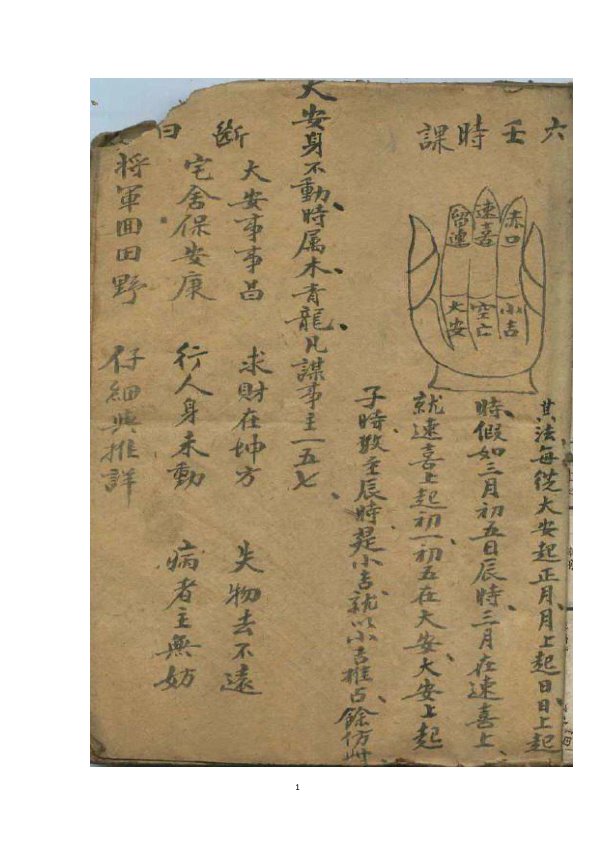 六壬時課
留連
速喜
赤口
大安
空亡
小吉
其法每從大安起正月、月上起日日上起
時、假如三月初五日辰時、三月在速喜上、
就速喜上起初一、初五在大安、大安上起
子時、数至辰時、是小吉、就以小吉推占、餘仿此
大安身不動時、属木、青龍、凡謀事主一五七、
斷曰
大安事事昌 求財在坤方 失物去不遠
宅舍保安康 行人身未動 病者主無妨
將軍回田野 仔細與推詳
1